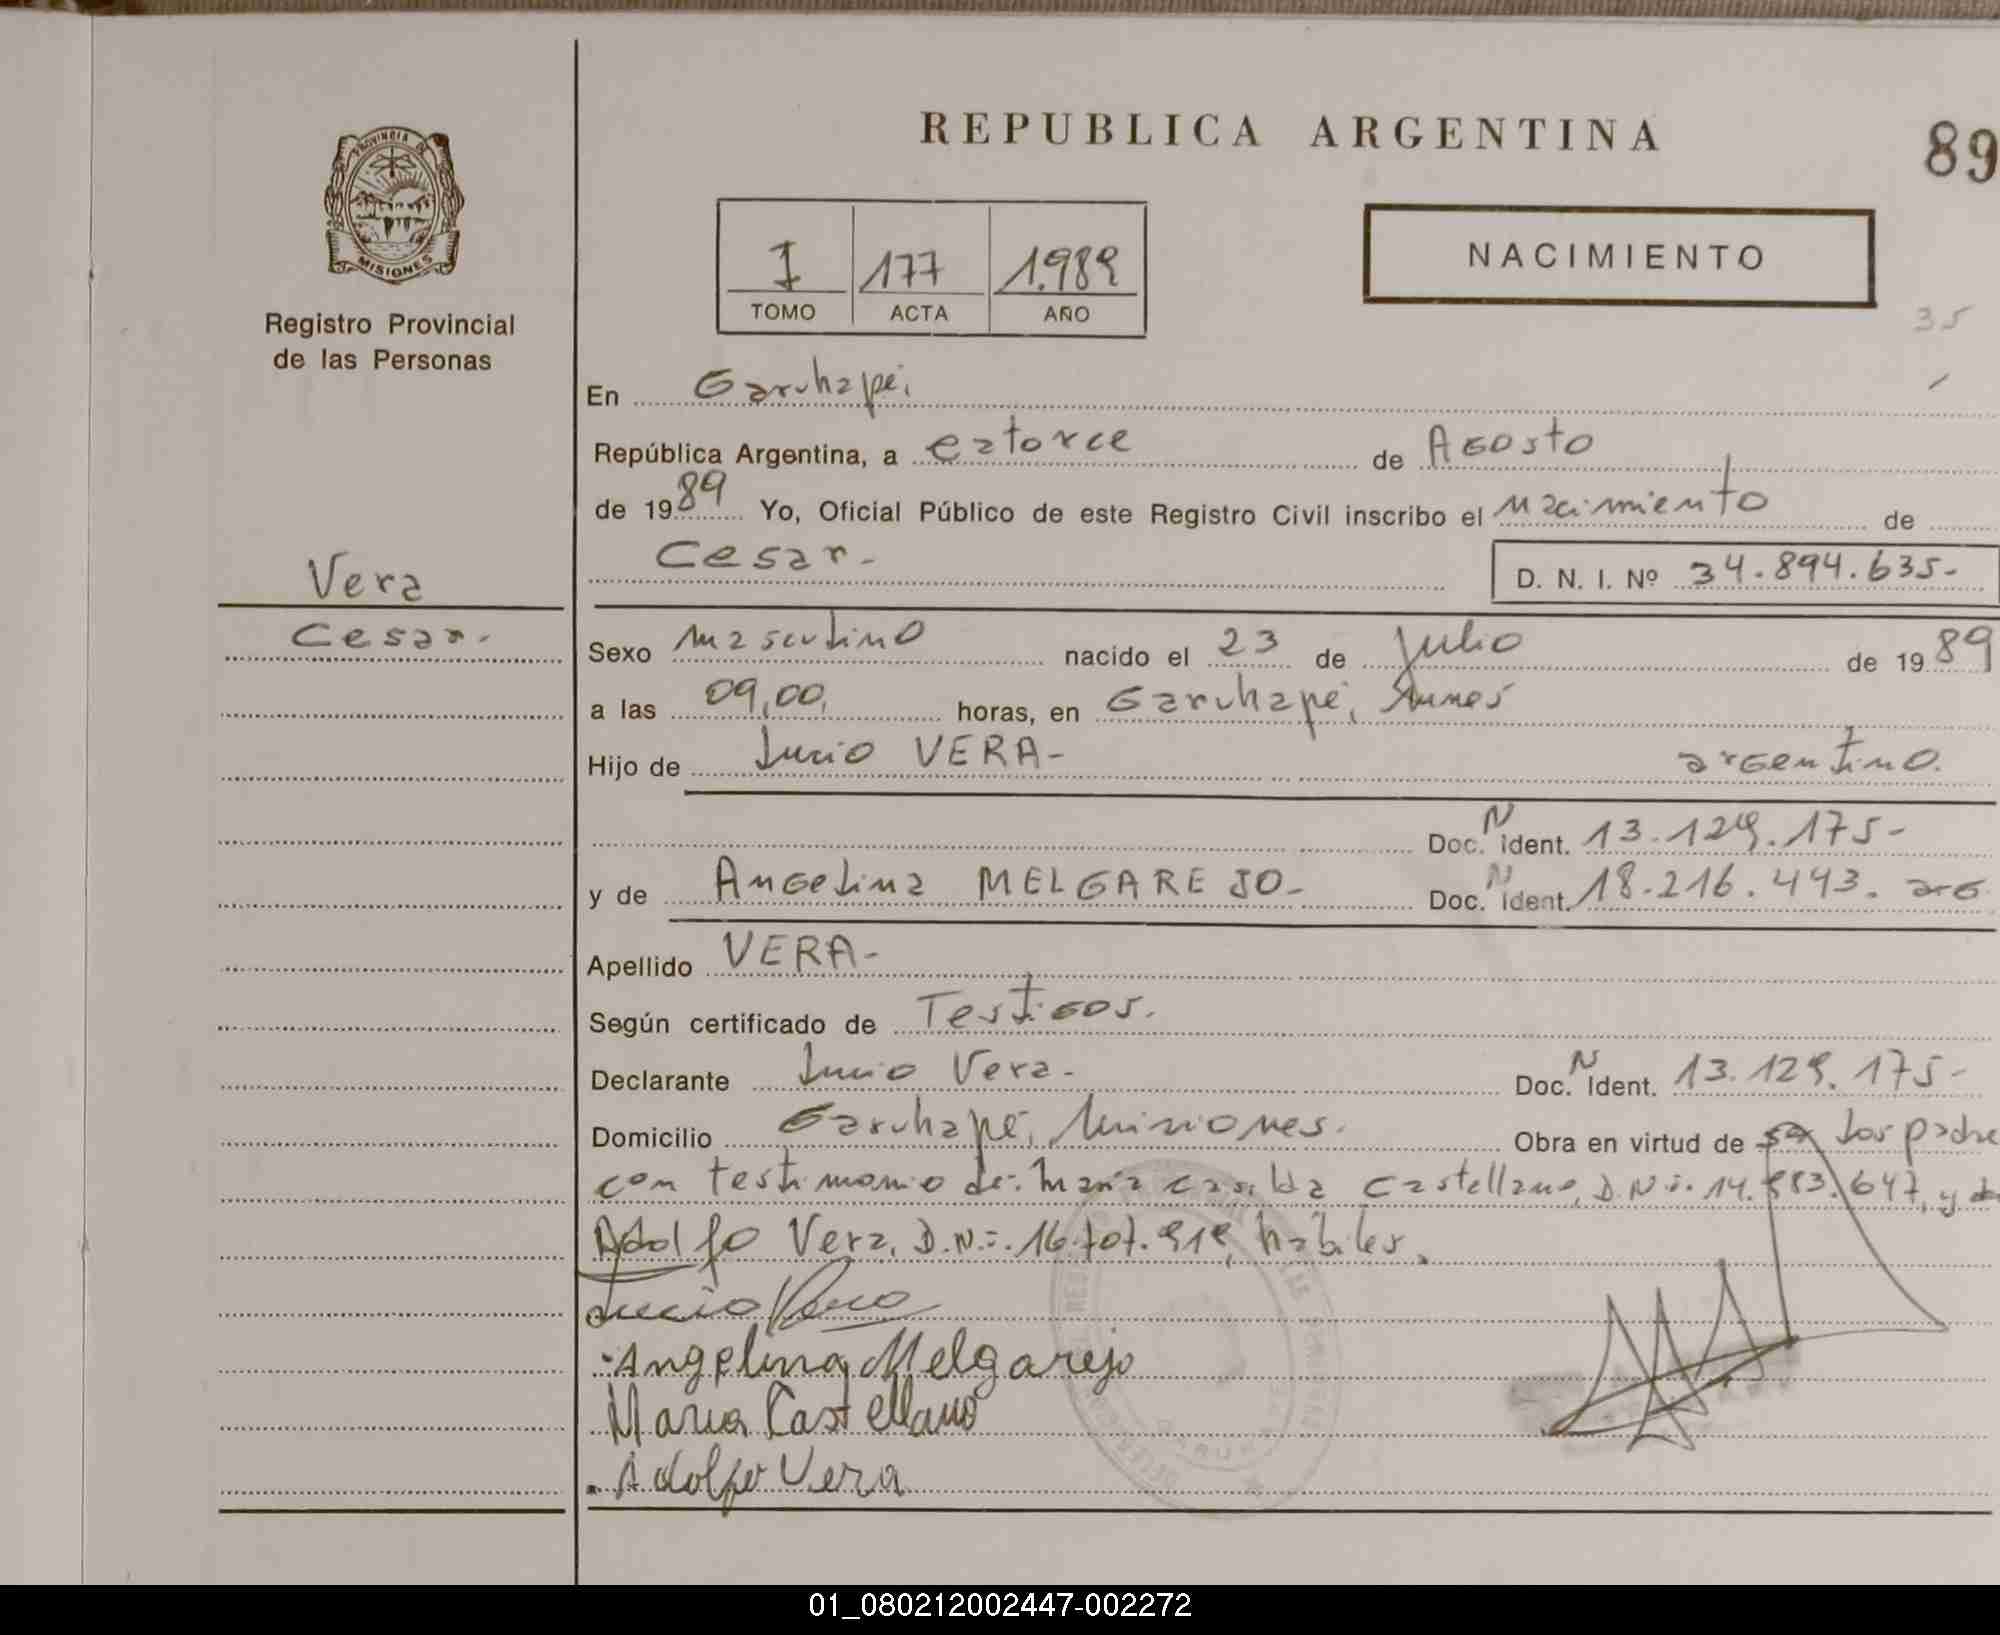 REPUBLICA ARGENTINA
89
PROVINCIA DE
MISIONES
Registro Provincial
de las Personas
I 177 1.989
TOMO ACTA AÑO
NACIMIENTO
35
En Garuhapé,
República Argentina, a catorce de Agosto
de 1989 Yo, Oficial Público de este Registro Civil inscribo el nacimiento de
Cesar.- D. N. I. Nº 34.894.635-
Vera
Cesar.-
Sexo masculino nacido el 23 de Julio de 1989
a las 09,00, horas, en Garuhapé,
Hijo de Lucio VERA- argentino.
Doc. N ident. 13.129.175-
y de Angelina MELGAREJO- Doc. N ident. 18.216.443. arg
Apellido VERA-
Según certificado de Testigos.
Declarante Lucio Vera- Doc. N Ident. 13.129.175-
Domicilio Garuhapé, Misiones. Obra en virtud de los padre
con testimonio de: Maria Casilda Castellano, D.N.i. 14. 647, y de
Adolfo Vera, D.N.i. habiles.
Lucio Vera
Angelina Melgarejo
Maria Castellano
Adolfo Vera
01_080212002447-002272